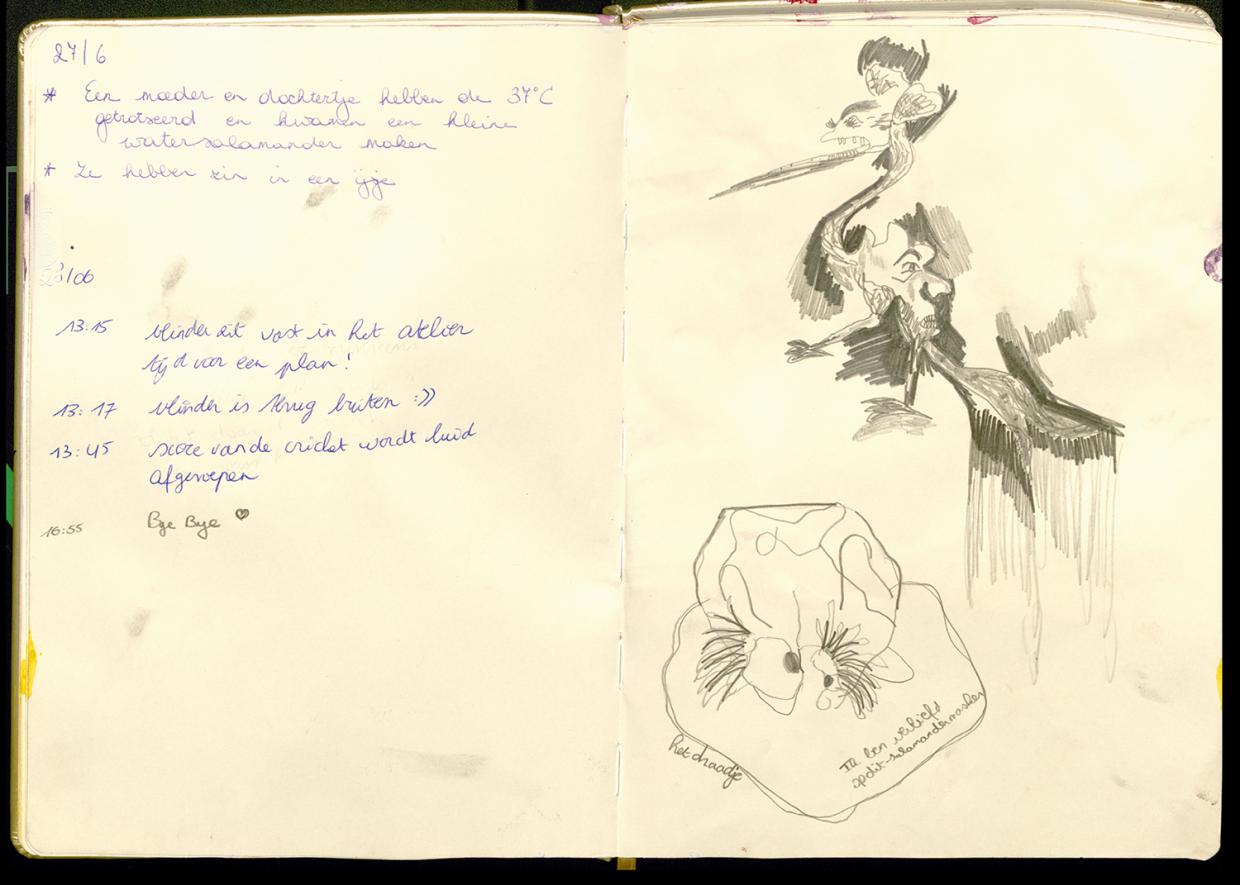 27/6
* Een moeder en dochtertje hebben de 37°C
getrotseerd en kwamen een kleine
watersalamander maken
* Ze hebben zin in een ijsje
/06
13:15 vlinder zit vast in het atelier
tijd voor een plan!
13:17 vlinder is terug buiten :))
13:45 score van de cricket wordt luid
afgeroepen
16:55 Bye Bye ♥
het draadje
Ik ben verliefd
op dit salamandermasker